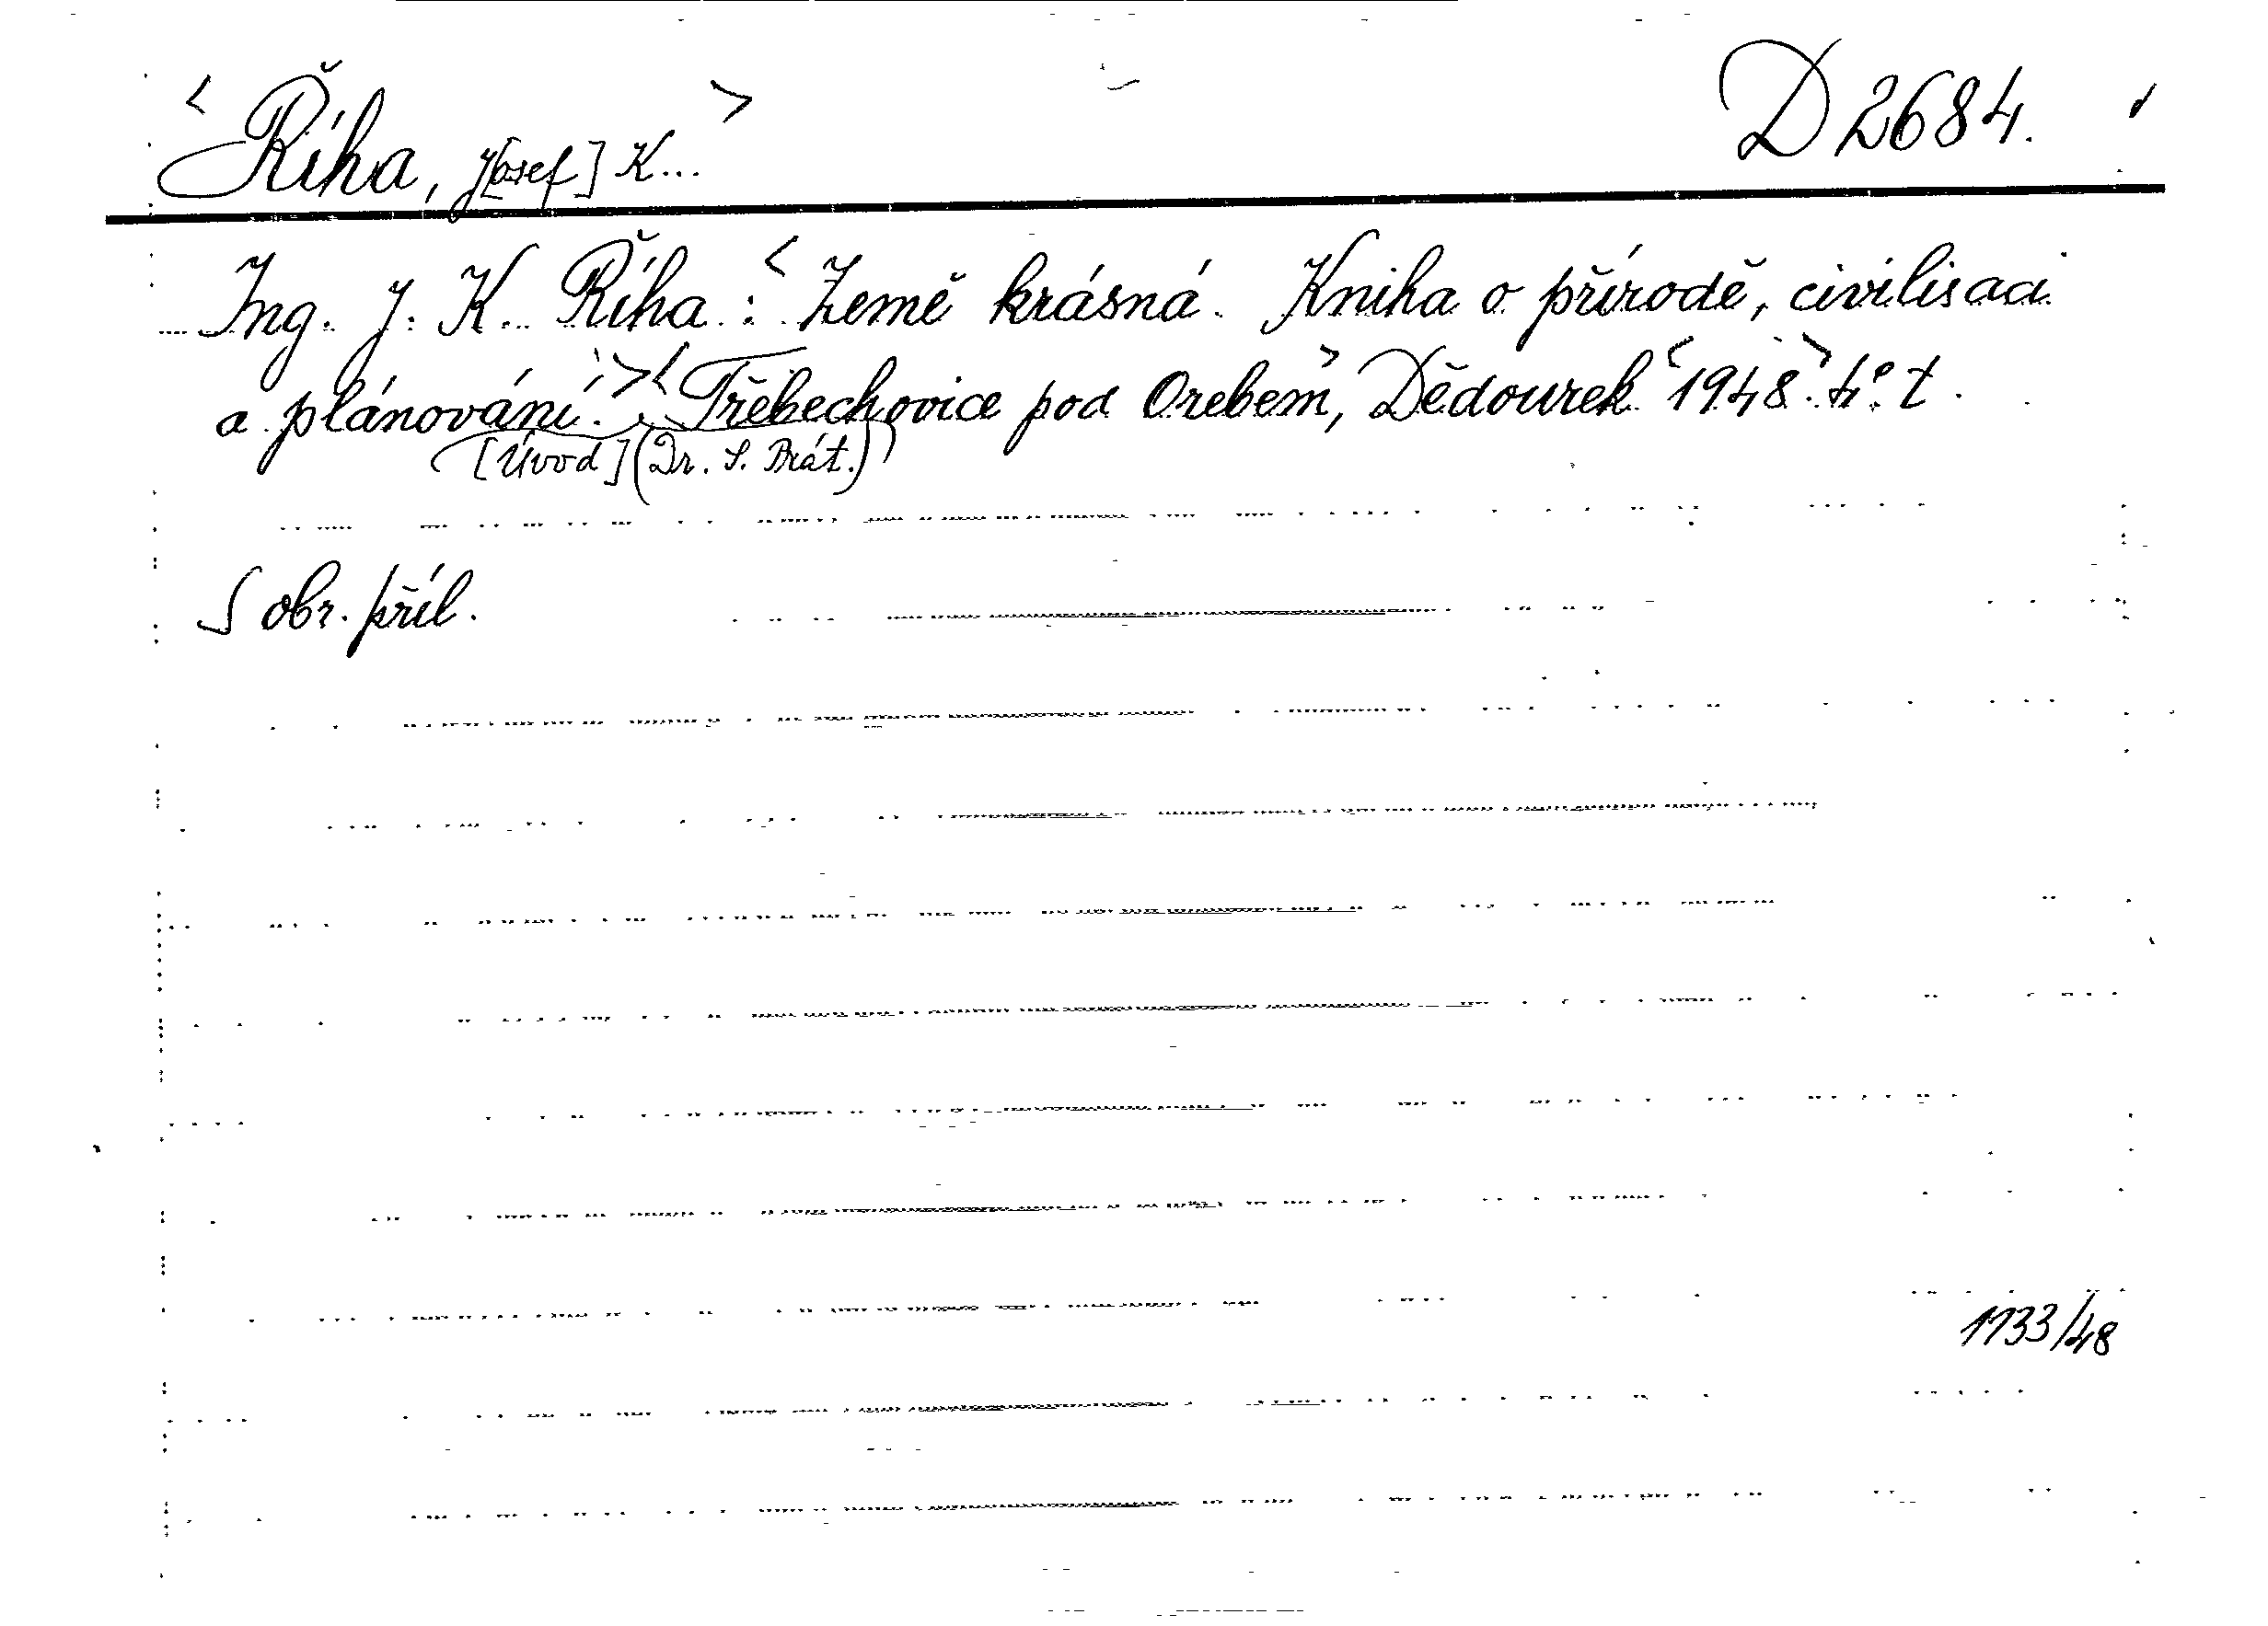 < Říha, J[osef] K... > D 2684.
Ing. J. K. Říha: < Země krásná. Kniha o přírodě, civilisaci
a plánování. > < Třebechovice pod Orebem >, Dědourek < 1948. > 4°. t.
[Úvod] (Dr. S. Brát.)
S obr. příl.
1133/48